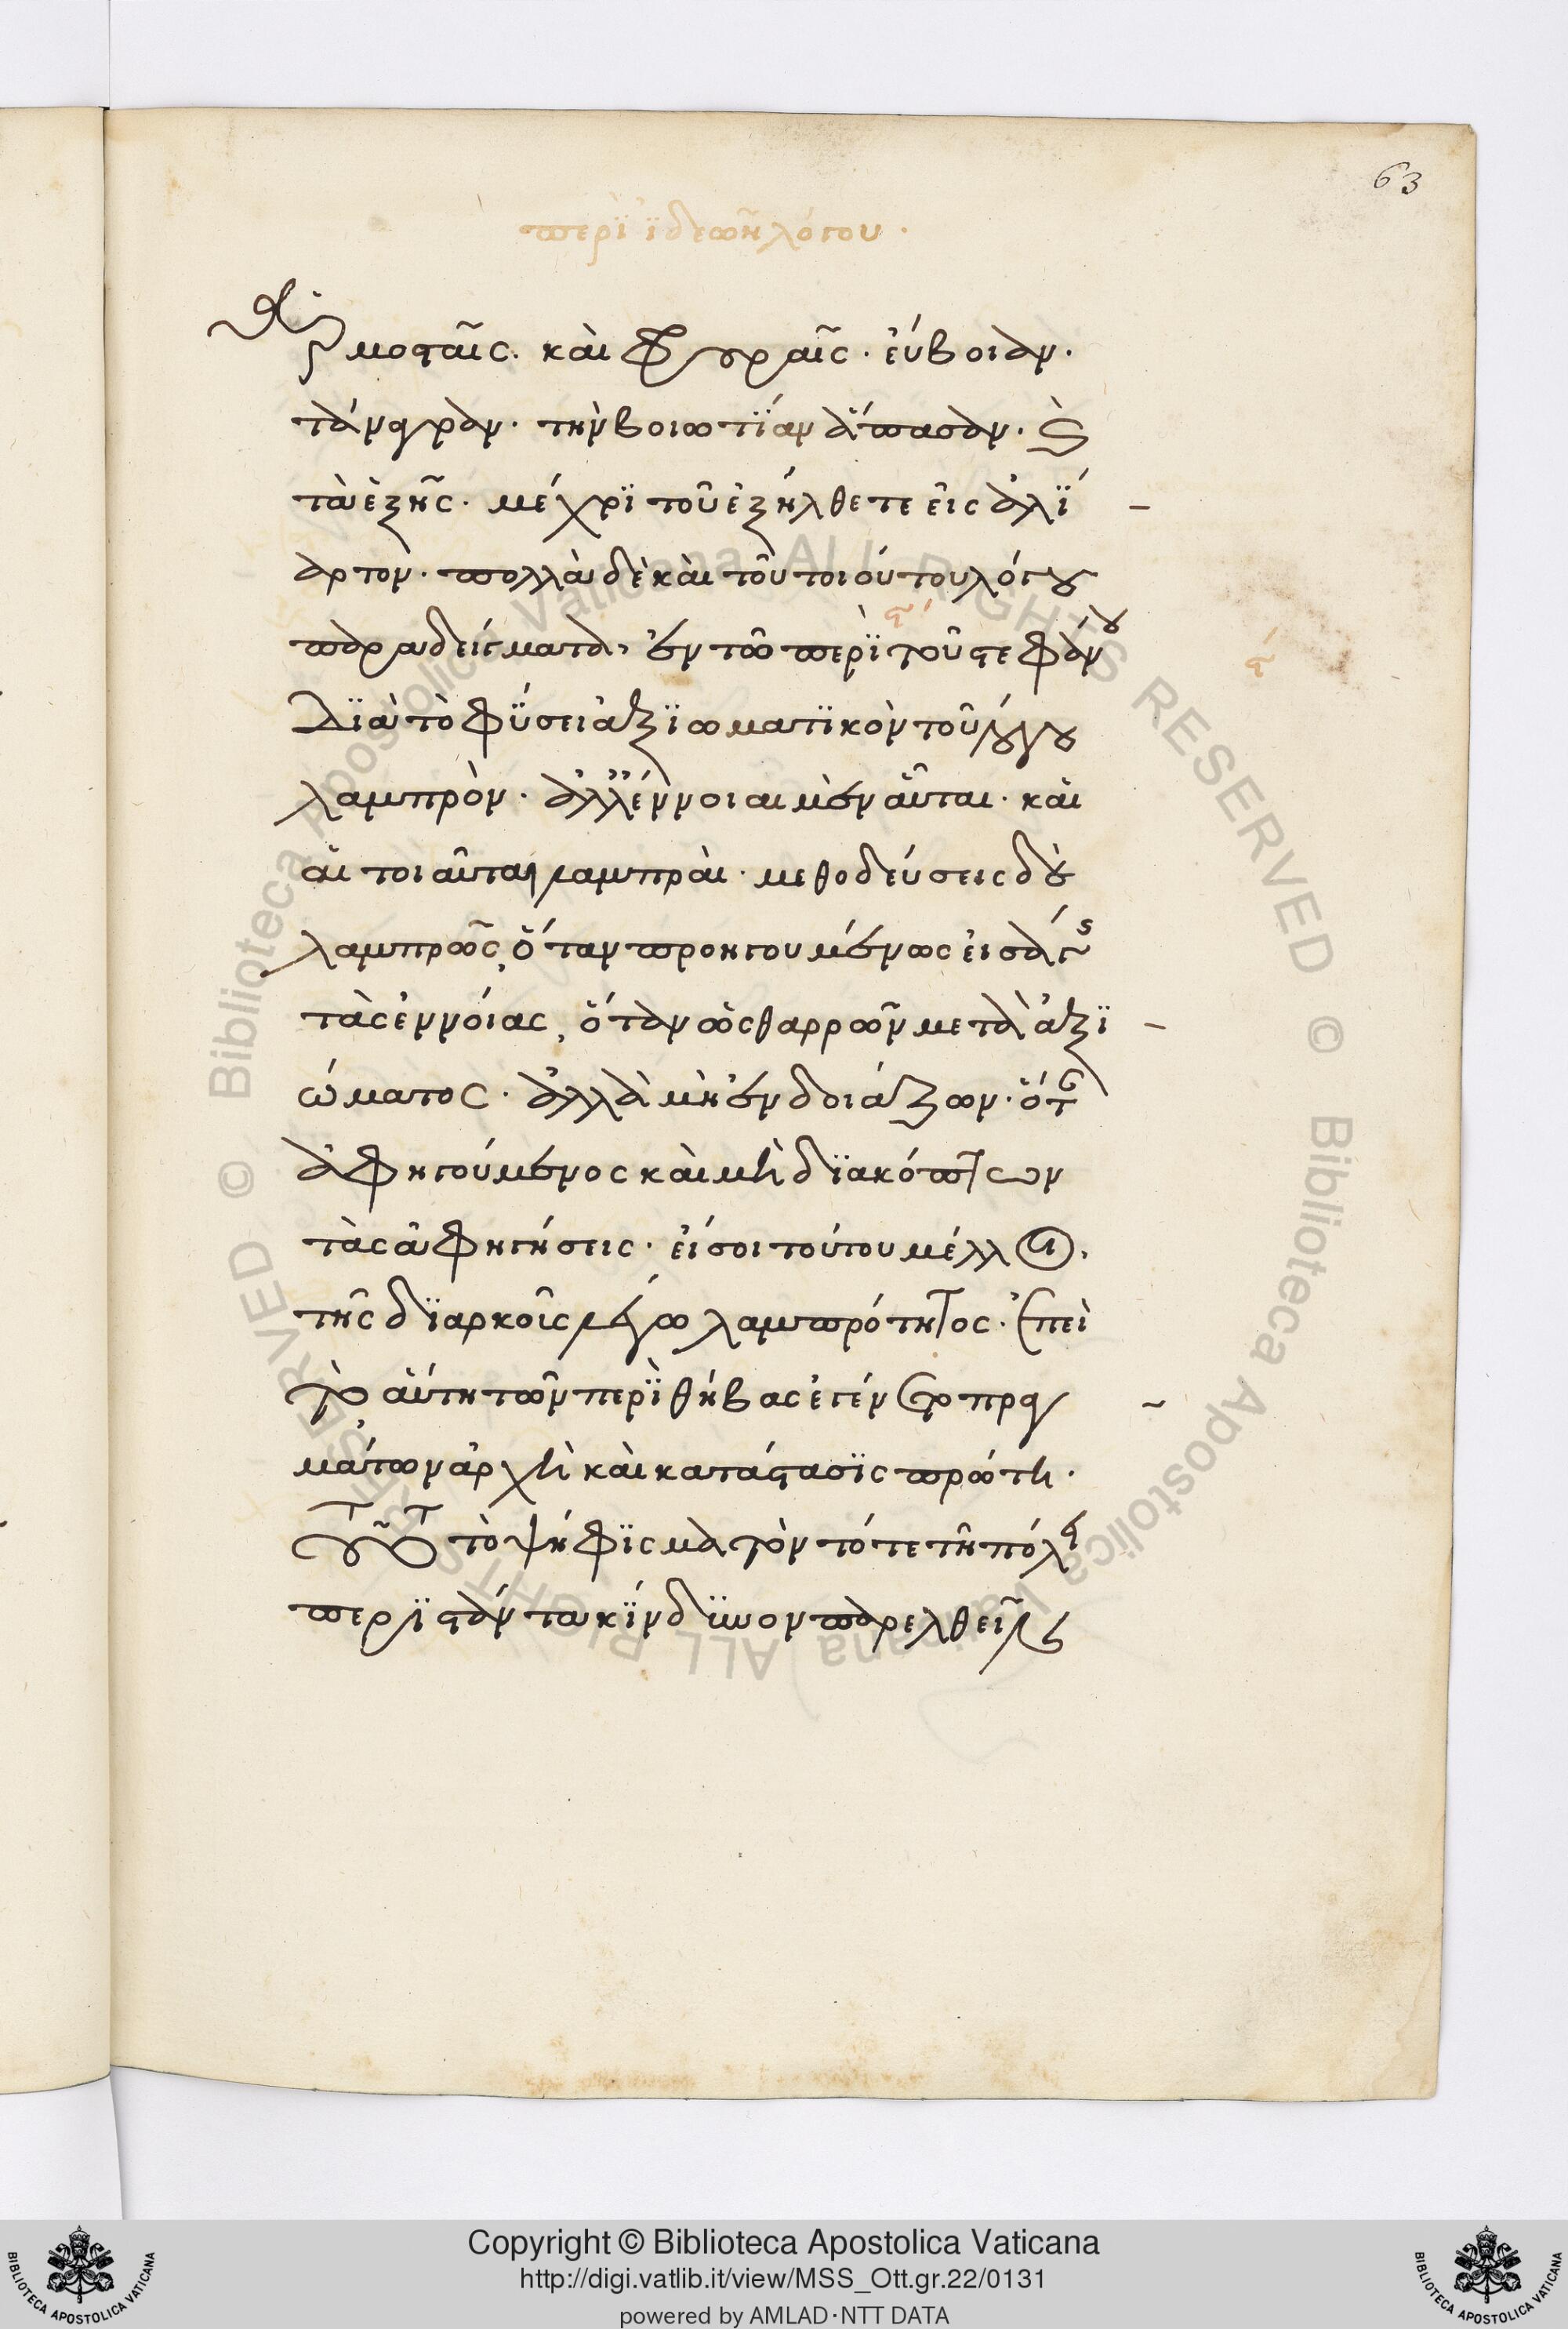 63
περὶ ἰδεῶν λόγου.
ἁρμοσταῖς. καὶ φρουραῖς. εὔβοιαν.
τάναγραν. τὴν βοιωτίαν ἅπασαν. καὶ
τὰ ἑξῆς. μέχρι τοῦ ἐξήλθετε εἰς ἁλί
αρτον. πολλὰ δὲ καὶ τοῦ τοιούτου λόγου
παραδείγματα, ἐν τῶ περὶ τοῦ στεφάνου
διὰ τὸ φύσει ἀξιωματικὸν τοῦ λόγου
λαμπρὸν. ἀλλ' ἔννοιαι μὲν αὗται. καὶ
αἱ τοιαῦται λαμπραὶ. μεθοδεύσεις δὲ
λαμπρῶς, ὅταν προηγουμένως εἰσάγης
τὰς ἐννοίας, ὅταν ὡς θαρρῶν μετὰ ἀξι
ώματος. ἀλλὰ μὴ ἐνδοιάζων. ὅταν
ἀφηγούμενος καὶ μὴ διακόπτων
τὰς ἀφηγήσεις. εἴ σοι τούτου μέλλει,
τῆς διαρκοῦς λέγω λαμπρότητος. ἐπεὶ
γὰρ αὕτη τῶν περὶ θήβας ἐγένετο πραγ
μάτων ἀρχὴ καὶ κατάστασις πρώτη.
τοῦτο τὸ ψήφισμα τὸν τότε τῆ πόλει
περιστάντα κίνδυνον παρελθεῖν
Copyright © Biblioteca Apostolica Vaticana
http://digi.vatlib.it/view/MSS_Ott.gr.22/0131
powered by AMLAD·NTT DATA
BIBLIOTECA APOSTOLICA VATICANA
BIBLIOTECA APOSTOLICA VATICANA